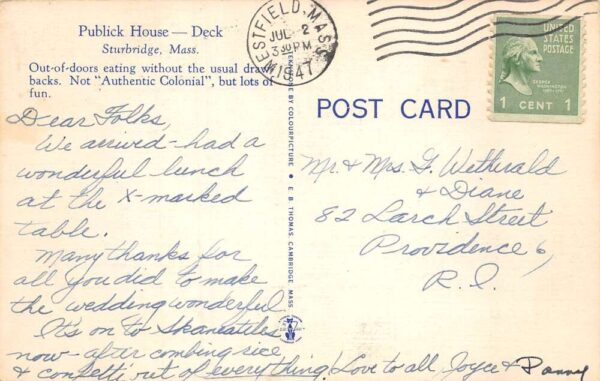 Publick House — Deck
Sturbridge, Mass.
Out-of-doors eating without the usual draw-
backs. Not "Authentic Colonial", but lots of
fun.
Dear Folks,
We arrived - had a
wonderful lunch
at the X-marked
table.
Many thanks for
all you did to make
the wedding wonderful.
It's on to Skaneatiles
now - after combing rice
& confetti out of everything! Love to all, Joyce & Danny
WESTFIELD, MASS.
JUL 2
3 30 PM
1947
COLOURPICTURE
E. B. THOMAS, CAMBRIDGE, MASS.
POST CARD
UNITED
STATES
POSTAGE
GEORGE
WASHINGTON
1 CENT 1
Mr. & Mrs. G. Wetherald
& Diane
82 Larch Street
Providence 6,
R. I.